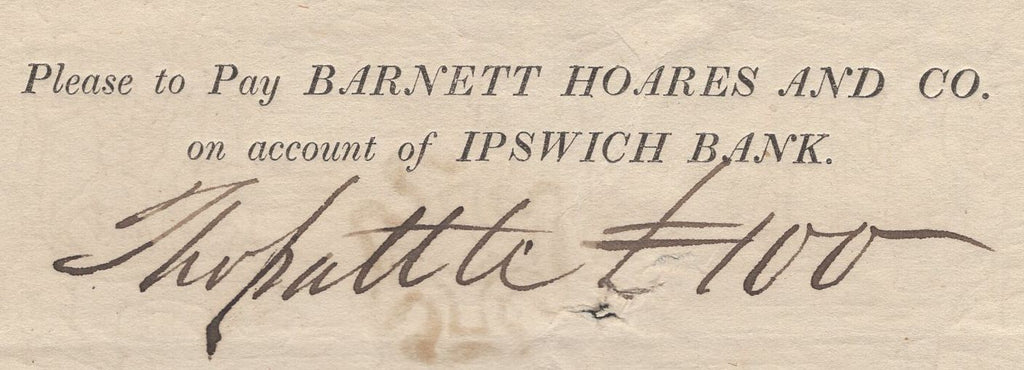 Please to Pay BARNETT HOARES AND CO.
on account of IPSWICH BANK.
Tho pattle £100